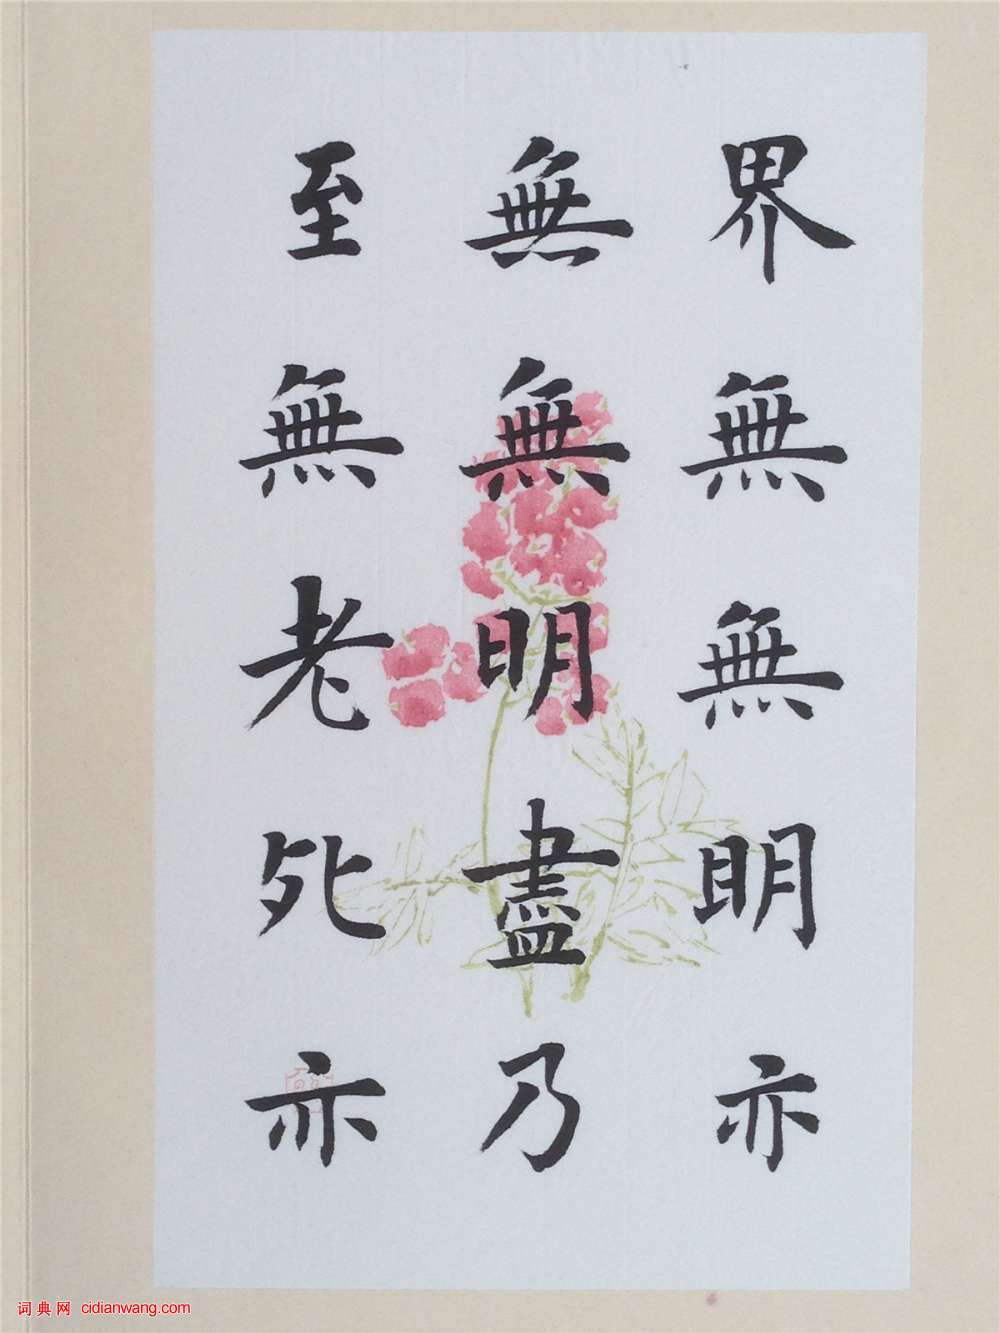 界無無明亦
無無明盡乃
至無老死亦
词典网 cidianwang.com